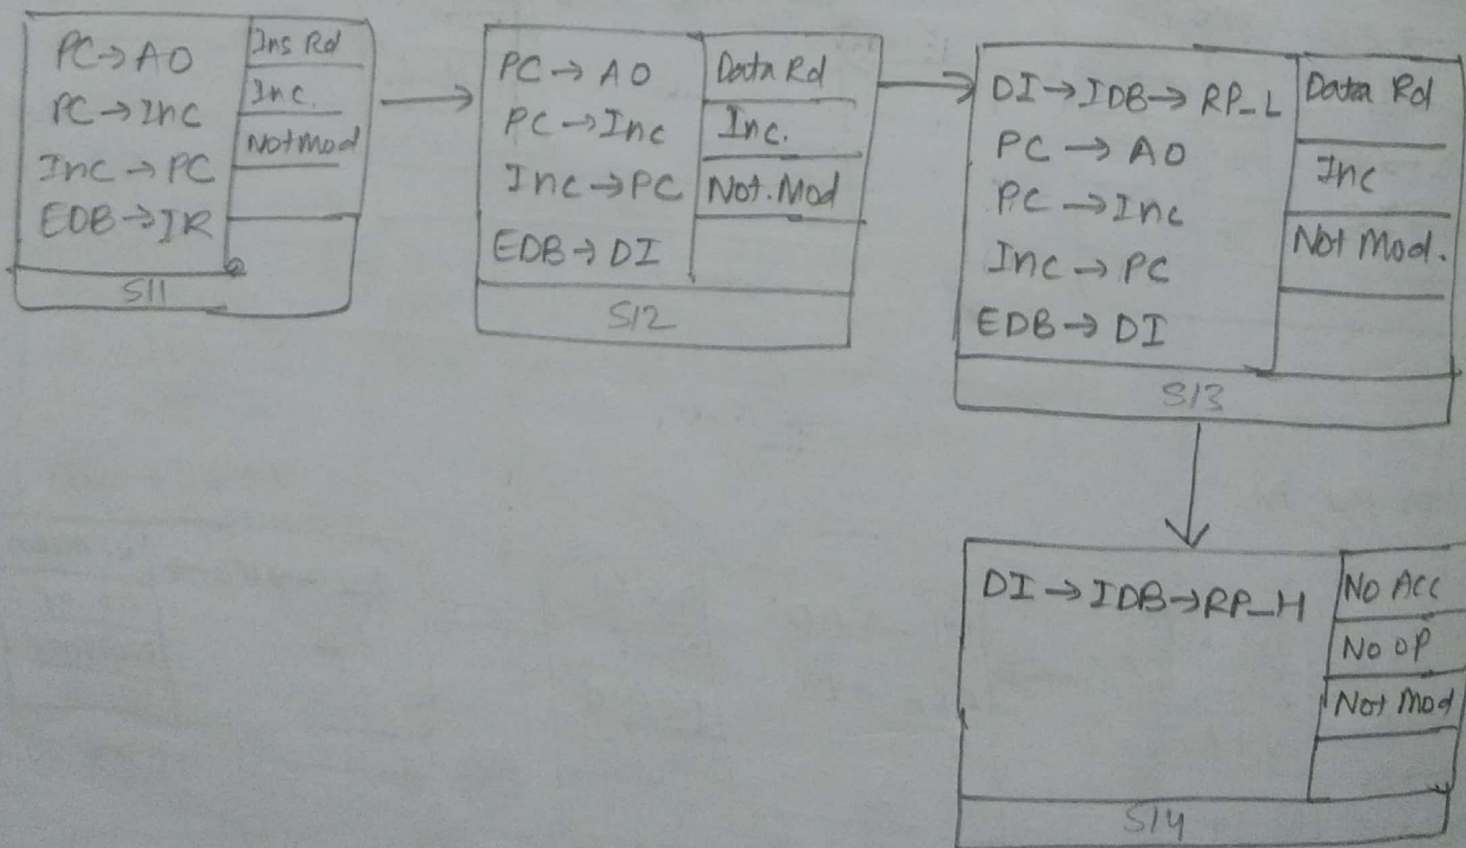 PC → AO
PC → Inc
Inc → PC
EDB → IR
Ins Rd
Inc.
Not Mod
S11
PC → AO
PC → Inc
Inc → PC
EDB → DI
Data Rd
Inc.
Not. Mod
S12
DI → IDB → RP_L
PC → AO
PC → Inc
Inc → PC
EDB → DI
Data Rd
Inc
Not Mod.
S13
DI → IDB → RP_H
No Acc
No OP
Not Mod
S14